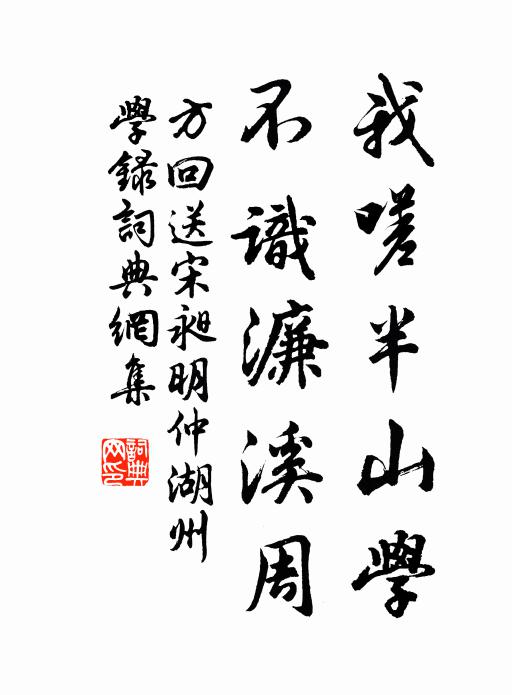 我嗟半山學
不識濂溪周
方回送宋昶明仲湖州
學錄詞典網集
詞典網印